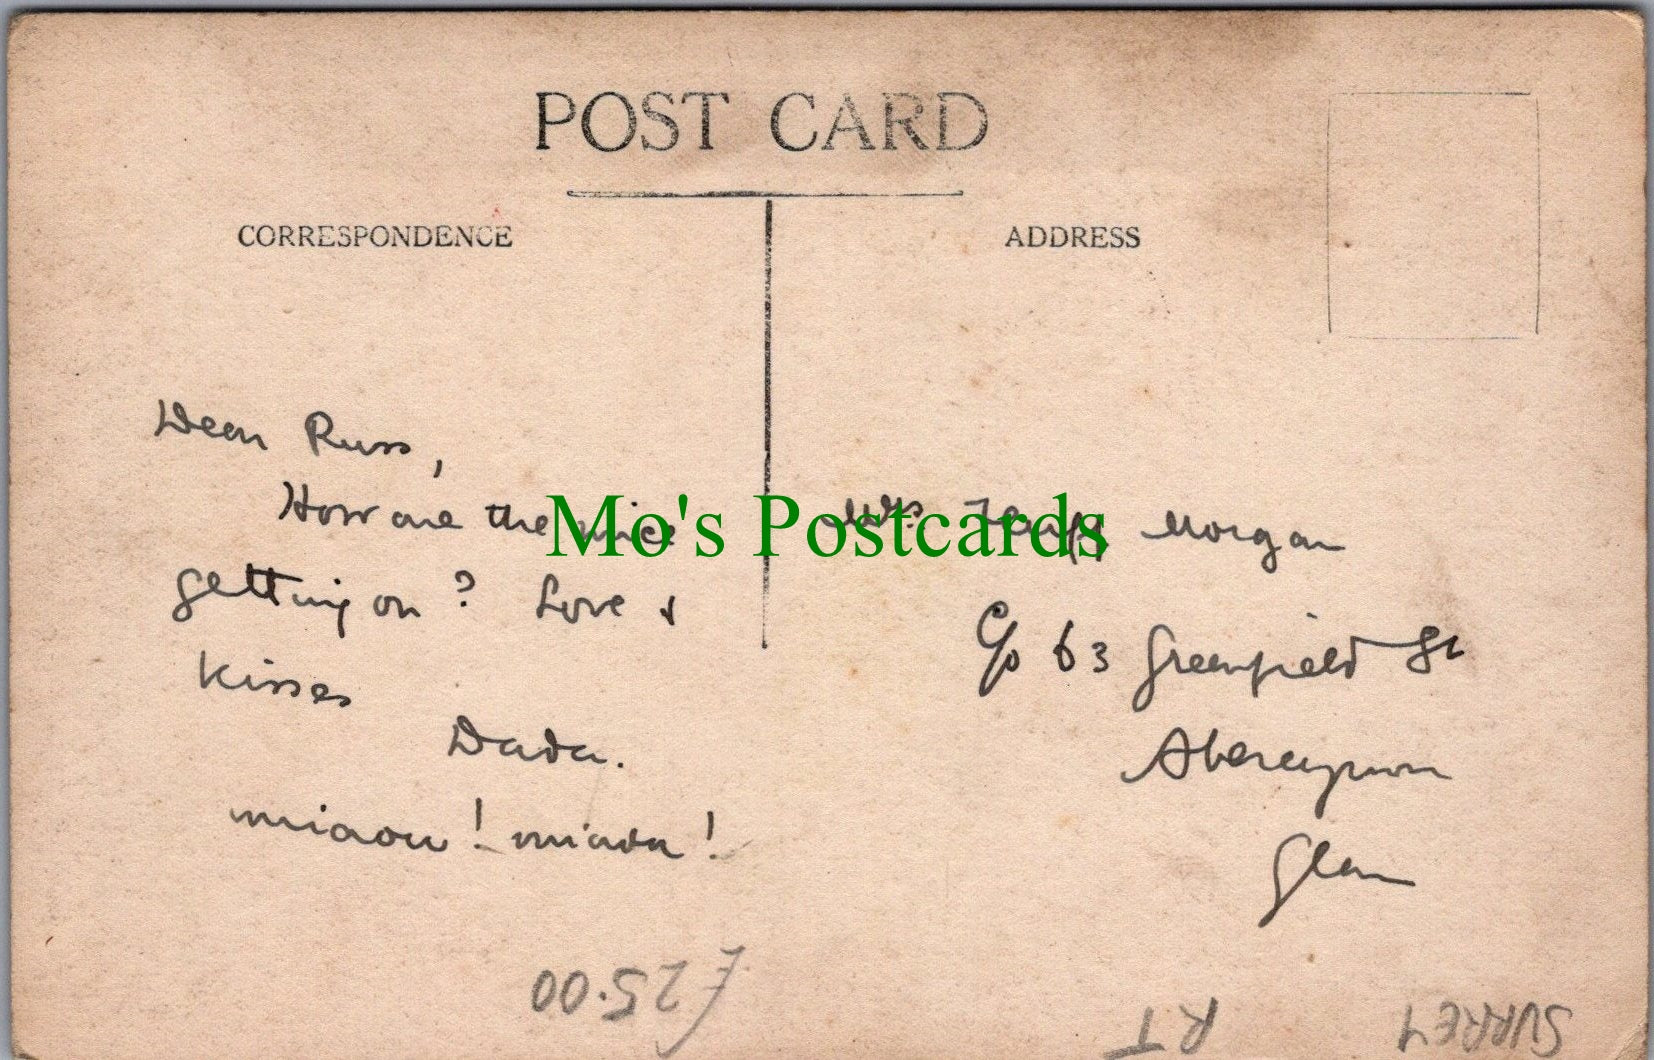 POST CARD
CORRESPONDENCE
ADDRESS
Dear Russ,
How are the mice
getting on? Love &
kisses
Dada.
miaow! miaow!
Mo's Postcards
Mrs Morgan
C/o 63 Greenfield St
Abercynon
Glam
£25.00
RT
SURREY